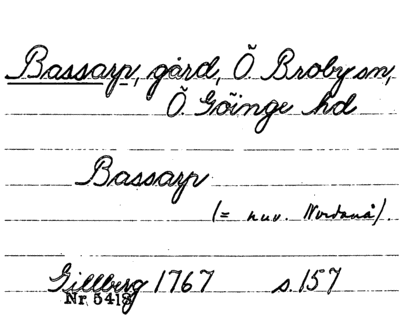 Bassarp, gård, Ö. Broby sn,
Ö. Göinge hd
Bassarp
(= nuv. Nordanå).
Gillberg 1767 s. 157
Nr 5418